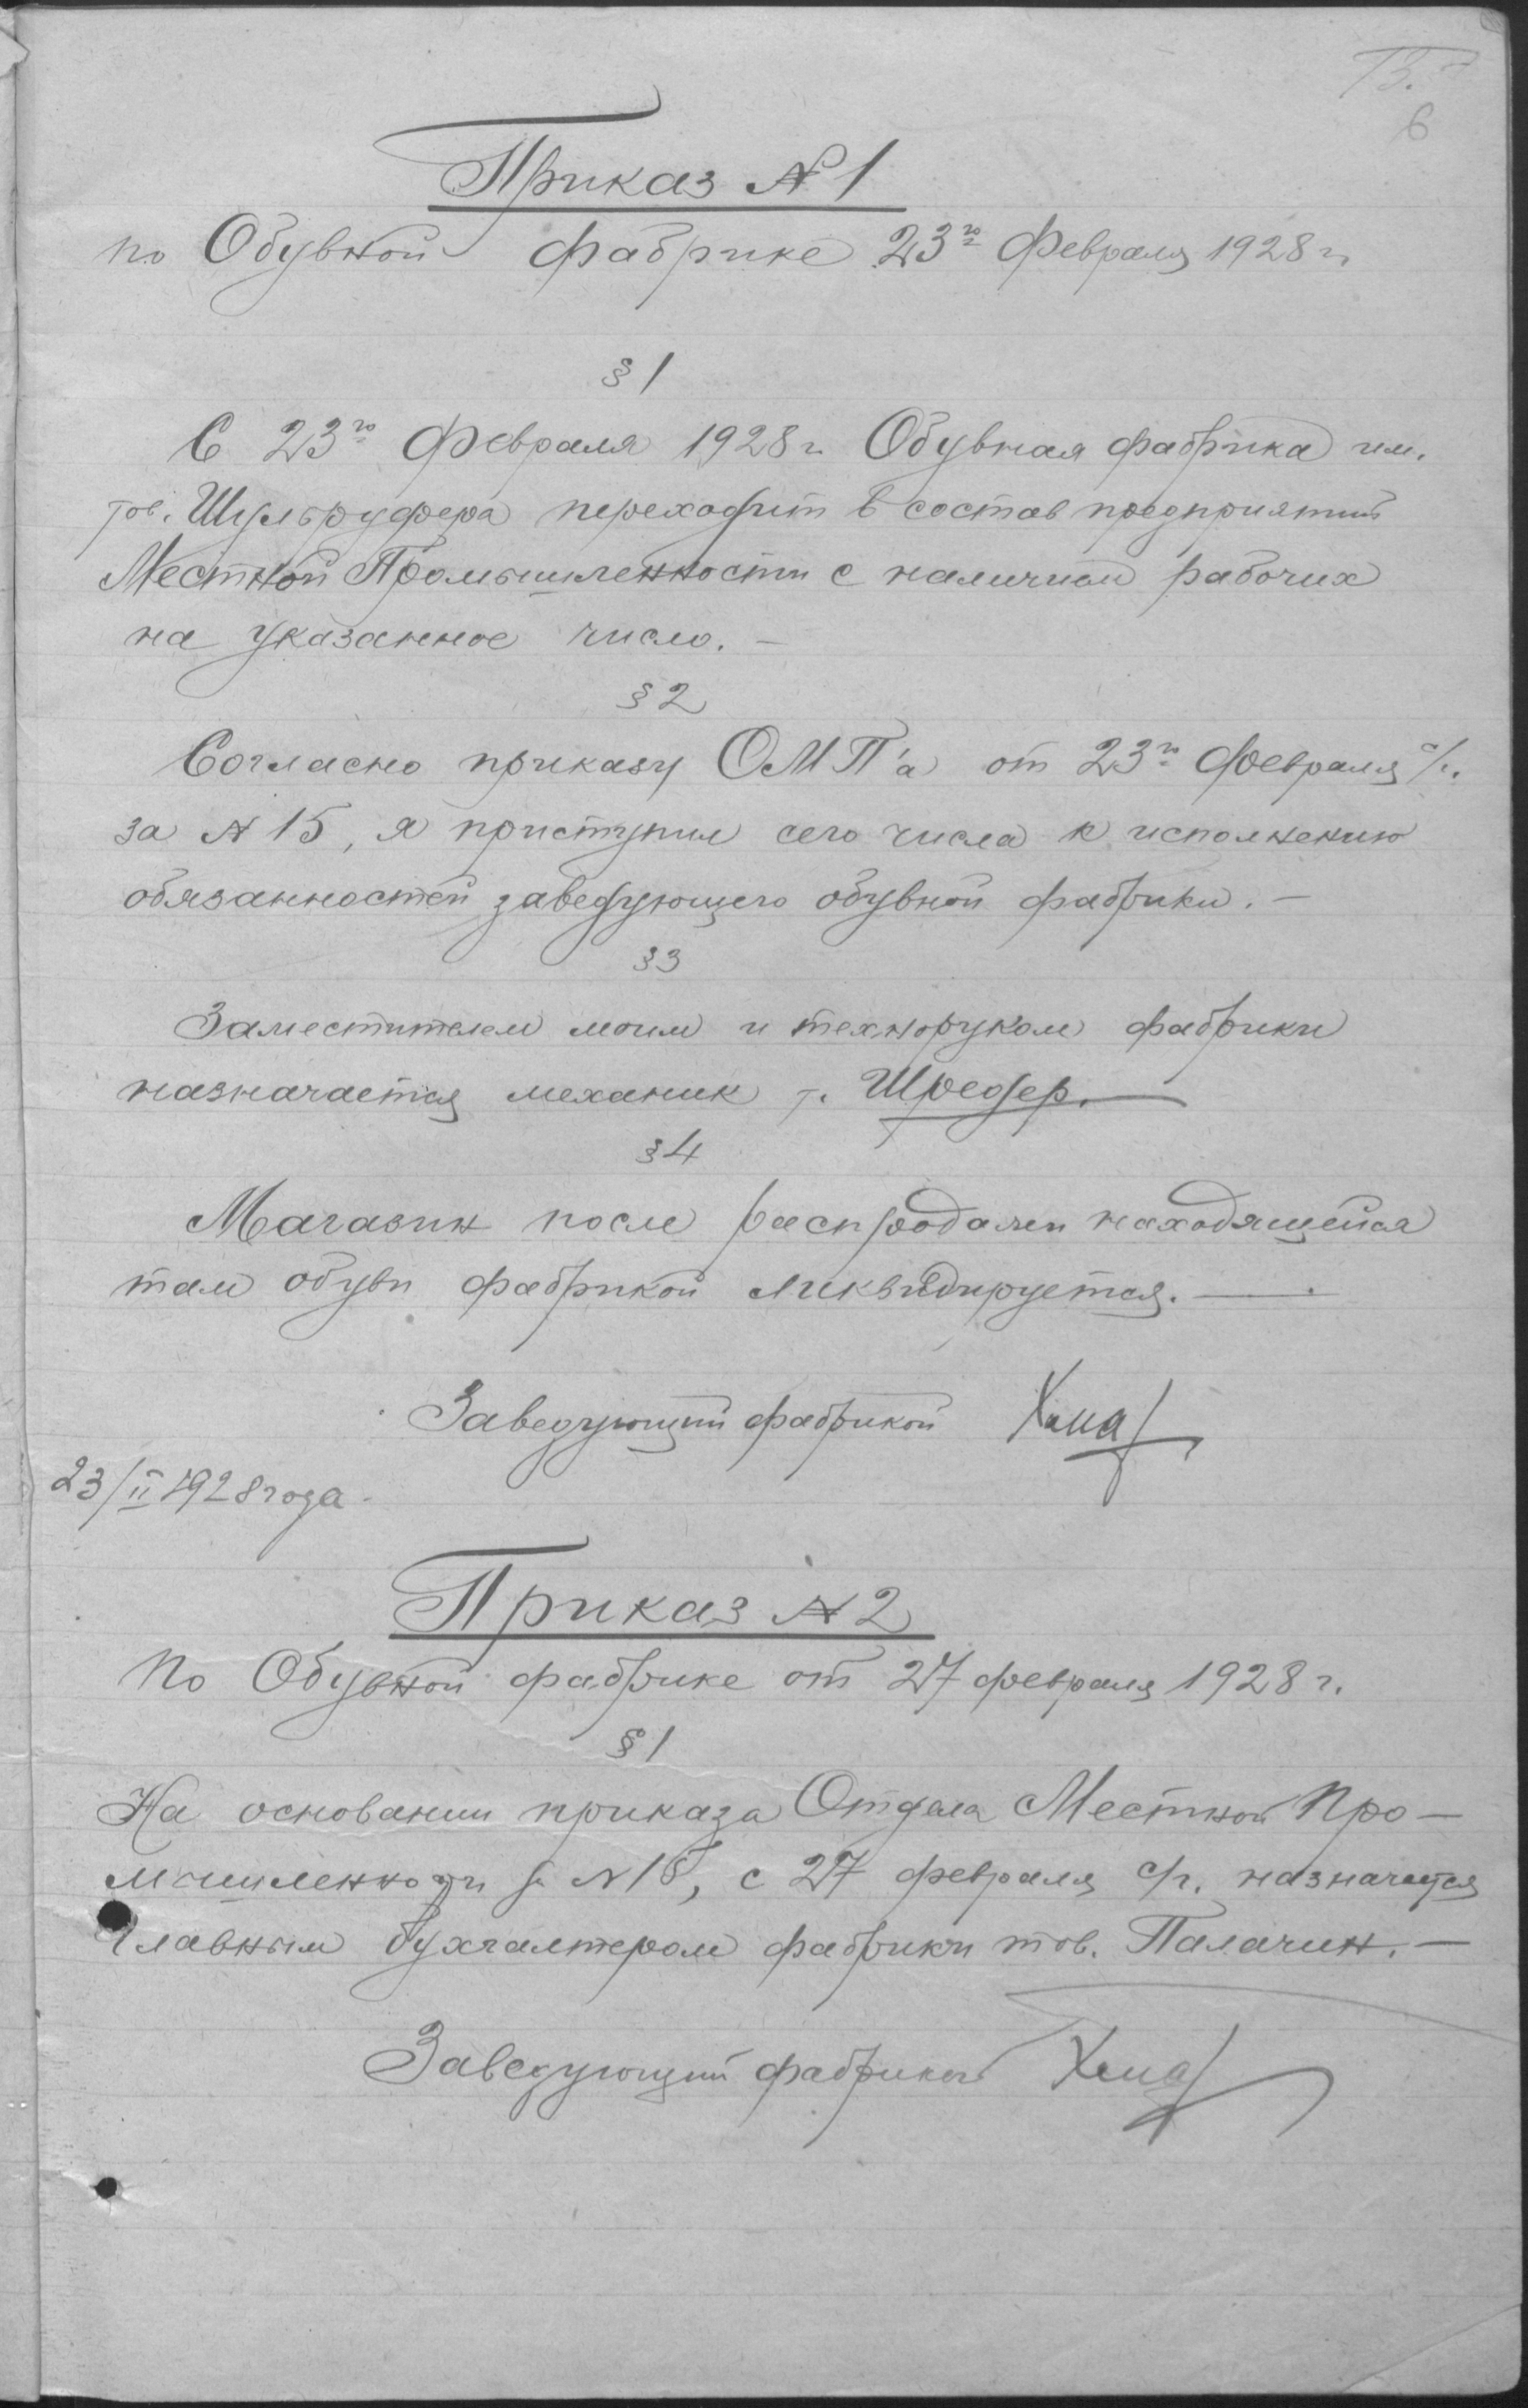 6
Приказ № 1
по Обувной фабрике 23го Февраля 1928 г.
§ 1
С 23го Февраля 1928 г. Обувная фабрика им.
тов. переходит в состав предприятий
Местной Промышленности с наличием рабочих
на указанное число. —
§ 2
Согласно приказу ОМП'а от 23го Февраля с/г.
за № 15, я приступил сего числа к исполнению
обязанностей заведующего обувной фабрики. —
§ 3
Заместителем моим и техноруком фабрики
назначается механик т. Шредер. —
§ 4
Магазин после распродажи находящейся
там обуви фабрикой ликвидируется. —
Заведующий фабрикой
23/II 1928 года.
Приказ № 2
По Обувной фабрике от 27 февраля 1928 г.
§ 1
На основании приказа Отдела Местной Про-
мышленности за №, с 27 февраля с/г. назначается
Главным бухгалтером фабрики тов. Палагин. —
Заведующий фабрикой